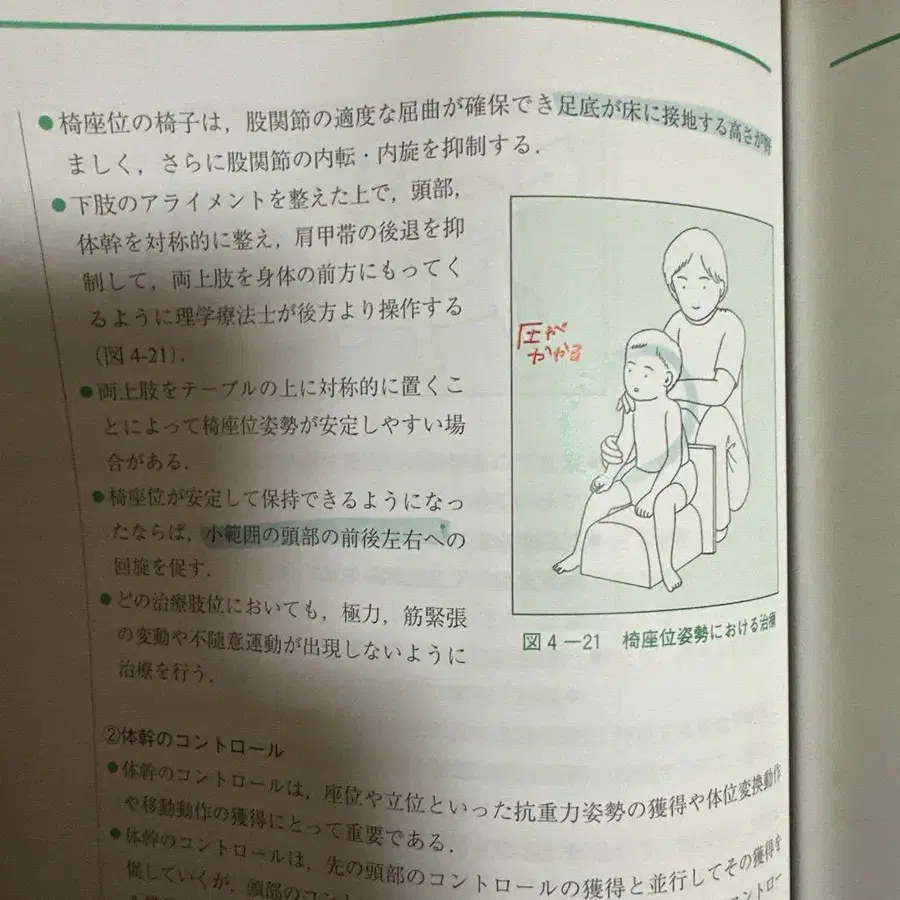 ● 椅座位の椅子は，股関節の適度な屈曲が確保でき足底が床に接地する高さが
ましく，さらに股関節の内転・内旋を抑制する．
● 下肢のアライメントを整えた上で，頭部，
体幹を対称的に整え，肩甲帯の後退を抑
制して，両上肢を身体の前方にもってく
るように理学療法士が後方より操作する
（図 4-21）．
● 両上肢をテーブルの上に対称的に置くこ
とによって椅座位姿勢が安定しやすい場
合がある．
● 椅座位が安定して保持できるようになっ
たならば，小範囲の頭部の前後左右への
回旋を促す．
● どの治療肢位においても，極力，筋緊張
の変動や不随意運動が出現しないように
治療を行う．
圧が
かかる
図 4－21　椅座位姿勢における治療
②体幹のコントロール
● 体幹のコントロールは，座位や立位といった抗重力姿勢の獲得や体位変換動作
や移動動作の獲得にとって重要である．
● 体幹のコントロールは，先の頭部のコントロールの獲得と並行してその獲得を
促していくが，頭部のコント